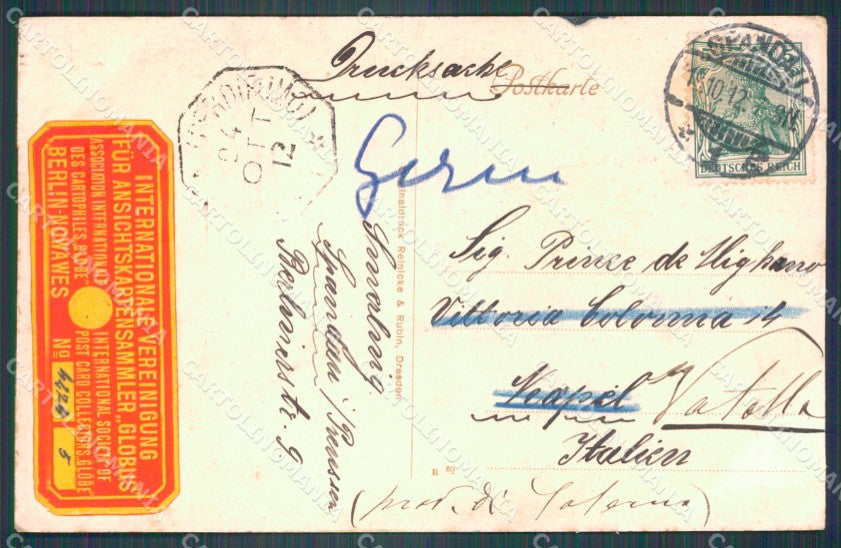 Drucksache
Postkarte
SPANDAU
15.10.12
DEUTSCHES REICH
24
OTT
12
INTERNATIONALE VEREINIGUNG
FÜR ANSICHTSKARTENSAMMLER „GLOBUS“
ASSOCIATION INTERNATIONALE
DES CARTOPHILES, GLOBE
INTERNATIONAL SOCIETY OF
POST CARD COLLECTORS, GLOBE
BERLIN-NOWAWES
No
5
Spandau i/Preussen
Berlinerstr. 9
Reinicke & Rubin, Dresden
Sig. Prince de
Vittoria Colonna 14
Neapel
Vatolla
Italien
(prov. di Salerno)
CARTOLINOMANIA